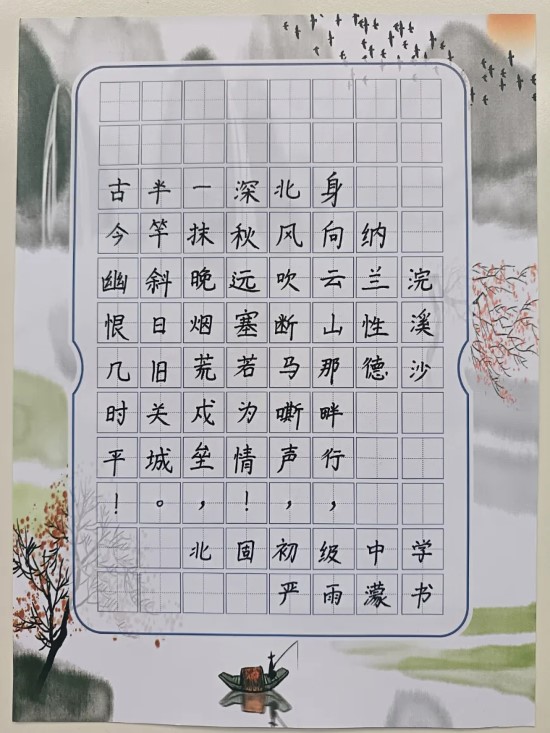 浣溪沙
纳兰性德
身向云山那畔行，
北风吹断马嘶声，
深秋远塞若为情！
一抹晚烟荒戍垒，
半竿斜日旧关城。
古今幽恨几时平！
北固初级中学
严雨濛书